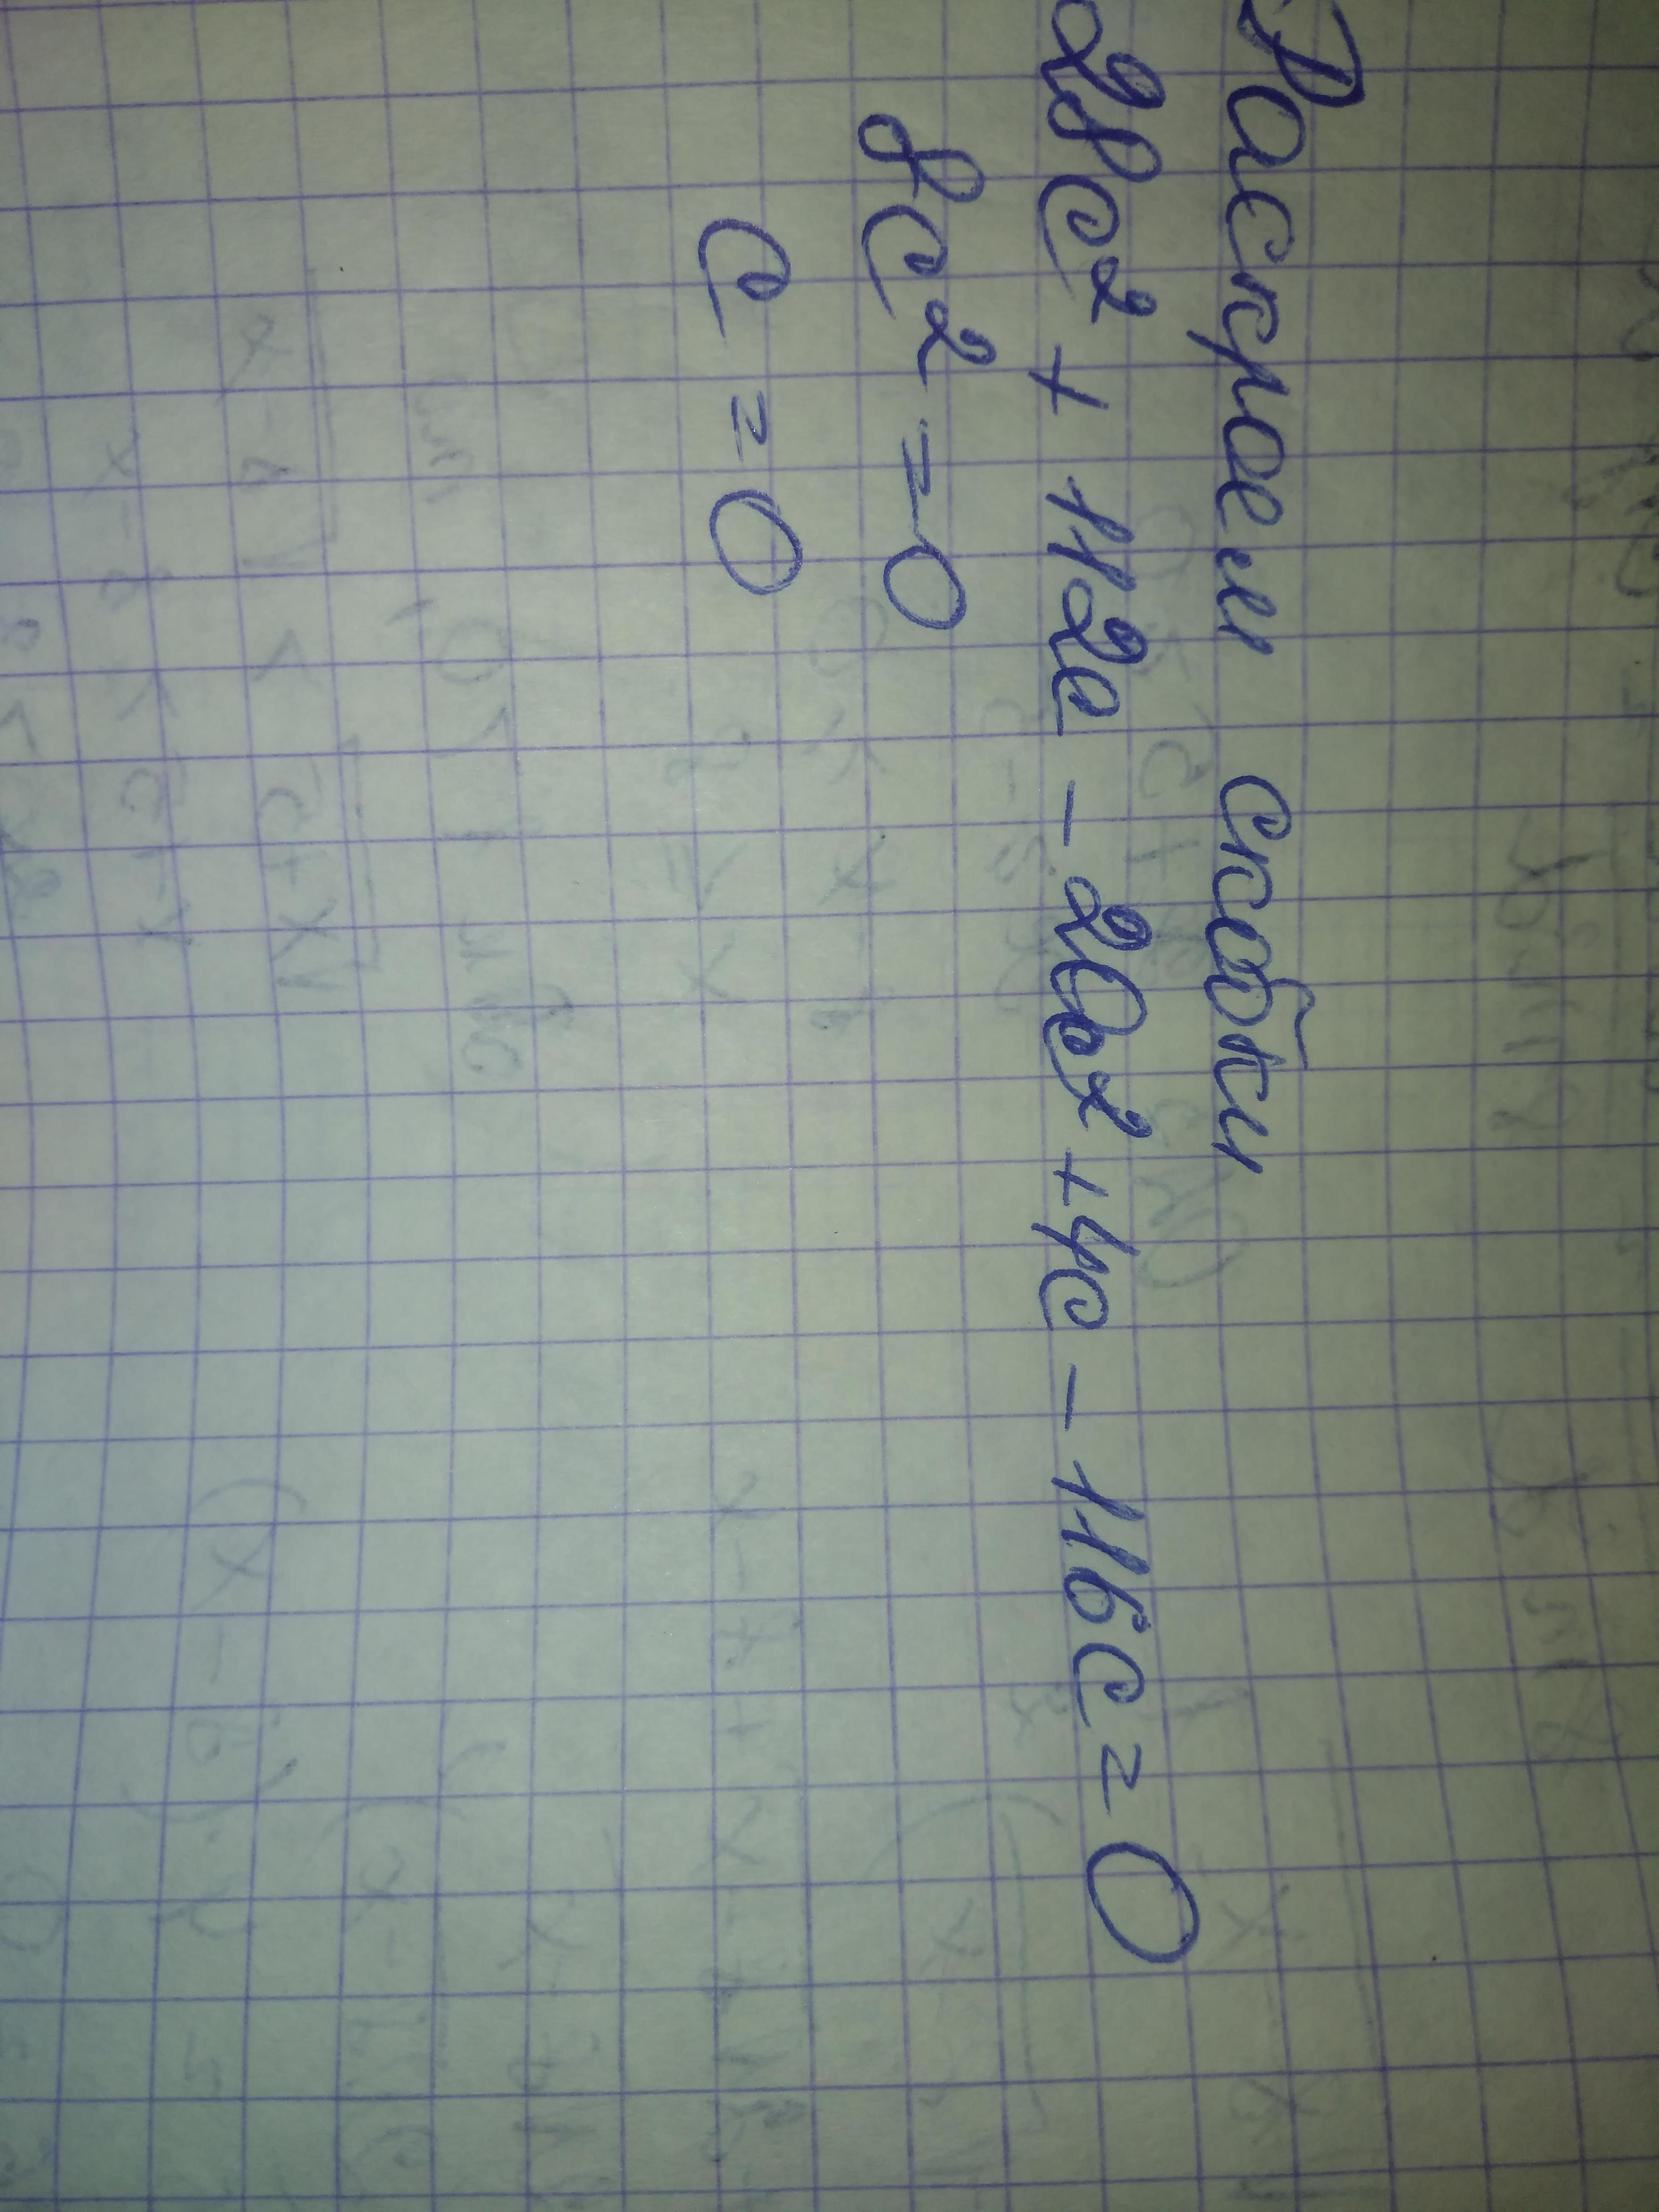 Раскроем скобки
28c² + 112c - 20c² + 4c - 116c = 0
8c² = 0
c = 0